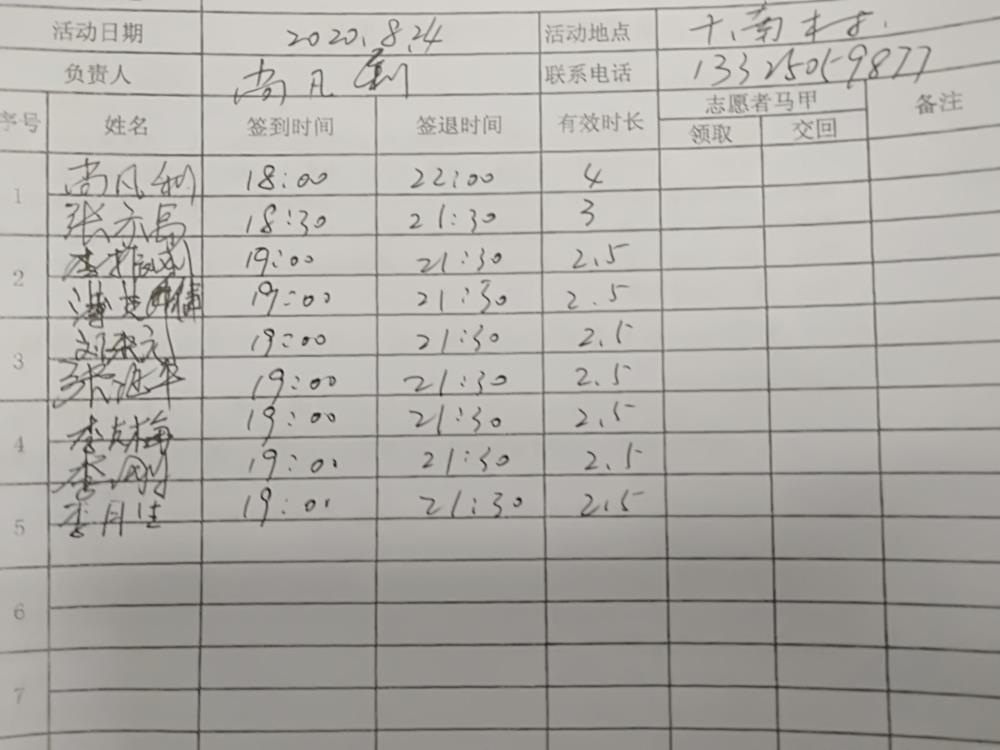 活动日期 2020.8.24 活动地点 十.南村
负责人 尚凡 联系电话 13325059877
序号 姓名 签到时间 签退时间 有效时长 志愿者马甲 备注
领取 交回
1 尚凡利 18:00 22:00 4
张亦易 18:30 21:30 3
2 李 19:00 21:30 2.5
19:00 21:30 2.5
3 刘 19:00 21:30 2.5
张 19:00 21:30 2.5
19:00 21:30 2.5
4 李 梅
李刚 19:00 21:30 2.5
5 李月佳 19:00 21:30 2.5
6
7